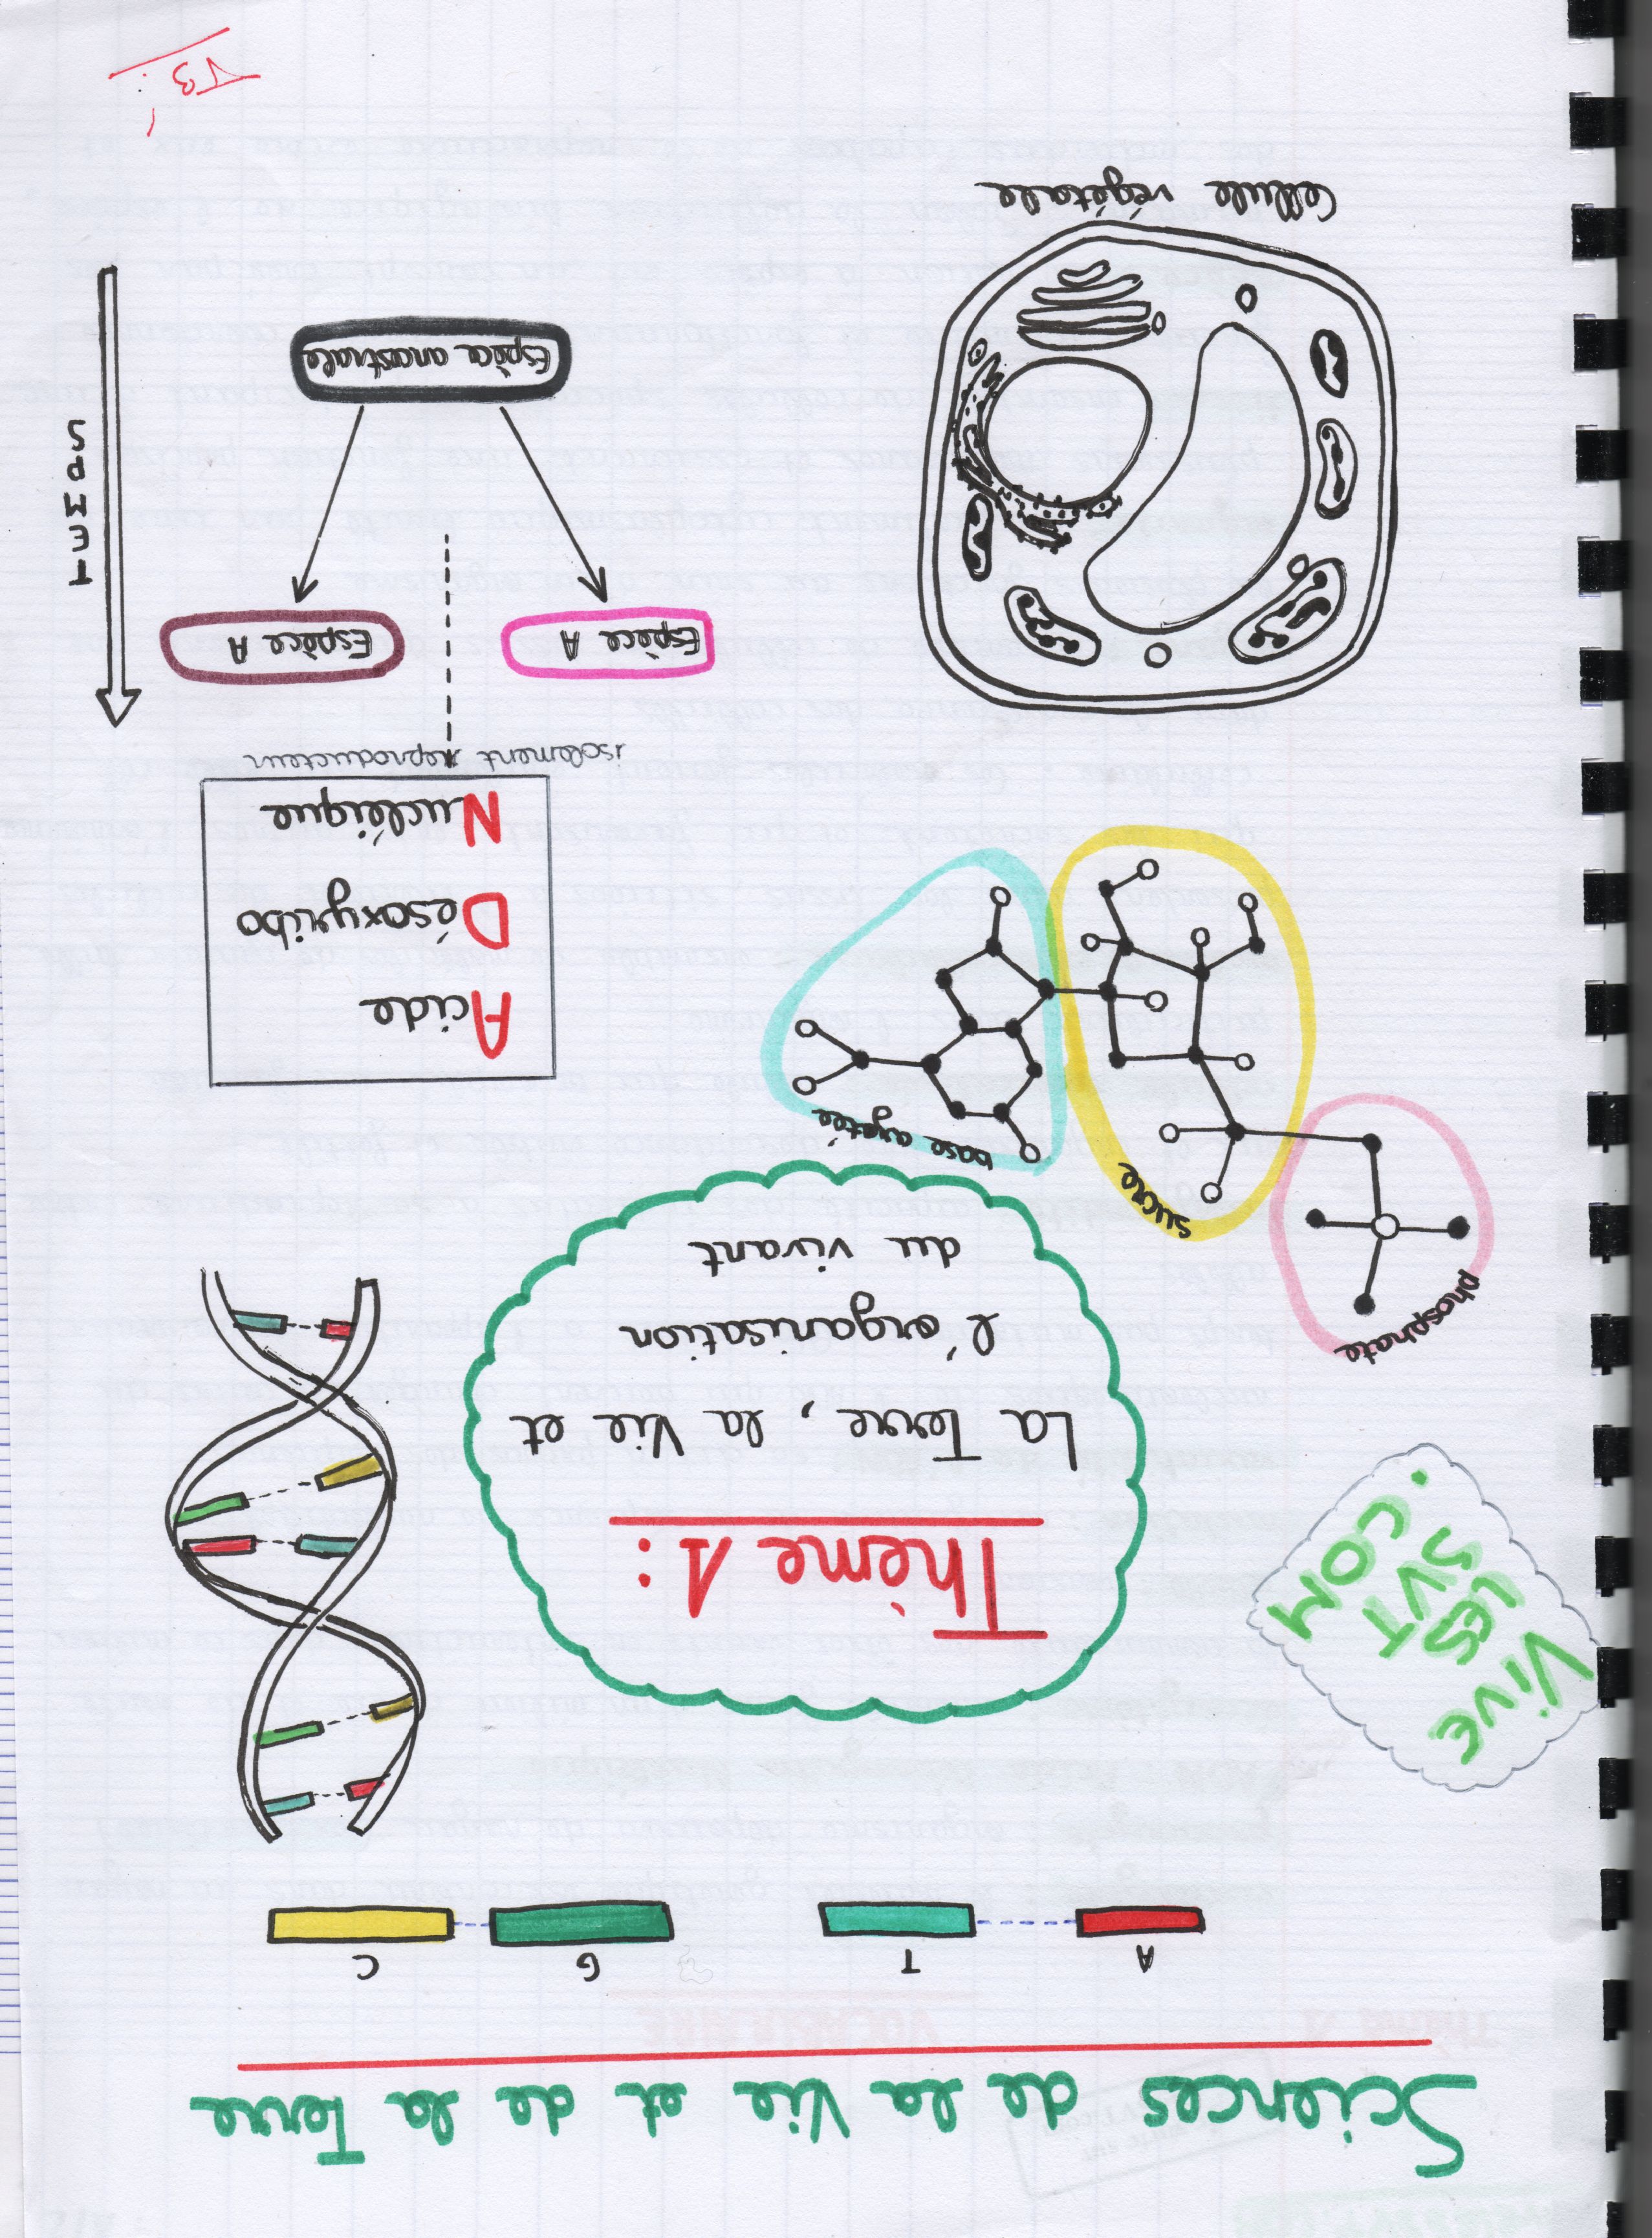 Sciences de la Vie et de la Terre
A T G C
VIVE
LES
SVT
.COM
Thème 1:
La Terre, la Vie et
l'organisation
du vivant
phosphate
sucre
base azotée
Acide
Désoxyribo
Nucléique
isolement reproducteur
Espèce A
Espèce A
Espèce ancestrale
TEMPS
Cellule végétale